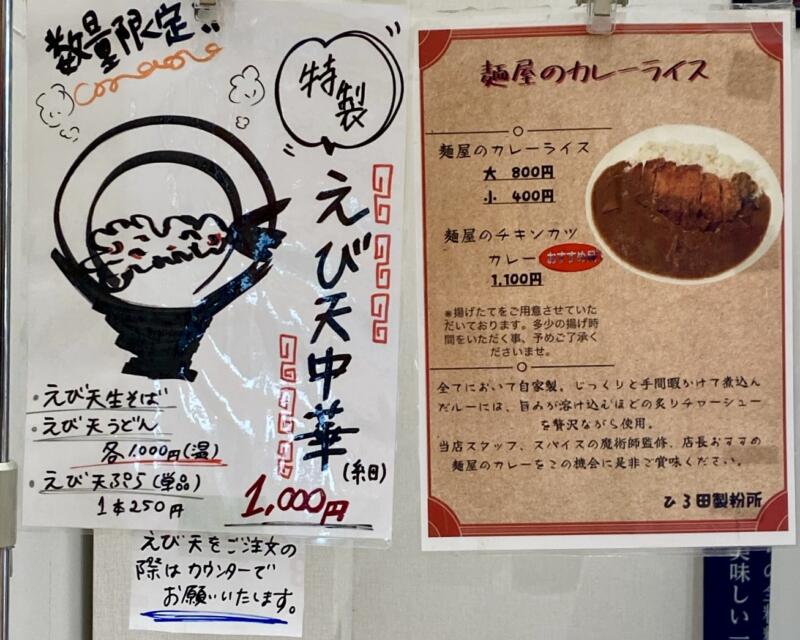 数量限定
特製
えび天中華
(細)
1,000円
・えび天生そば
・えび天うどん
各1.000円(温)
・えび天ぷら(単品)
1本250円
えび天をご注文の
際はカウンターで
お願いいたします。
麺屋のカレーライス
麺屋のカレーライス
大 800円
小 400円
麺屋のチキンカツ
カレー おすすめ品
1,100円
※揚げたてをご用意させていた
だいております。多少の揚げ時
間をいただく事、予めご了承く
ださいませ。
全てにおいて自家製。じっくりと手間暇かけて煮込ん
だルーには、旨みが溶け込むほどの炙りチャーシュー
を贅沢ながら使用。
当店スタッフ、スパイスの魔術師監修、店長おすすめ
麺屋のカレーをこの機会に是非ご賞味ください。
ひろ田製粉所
美味しい